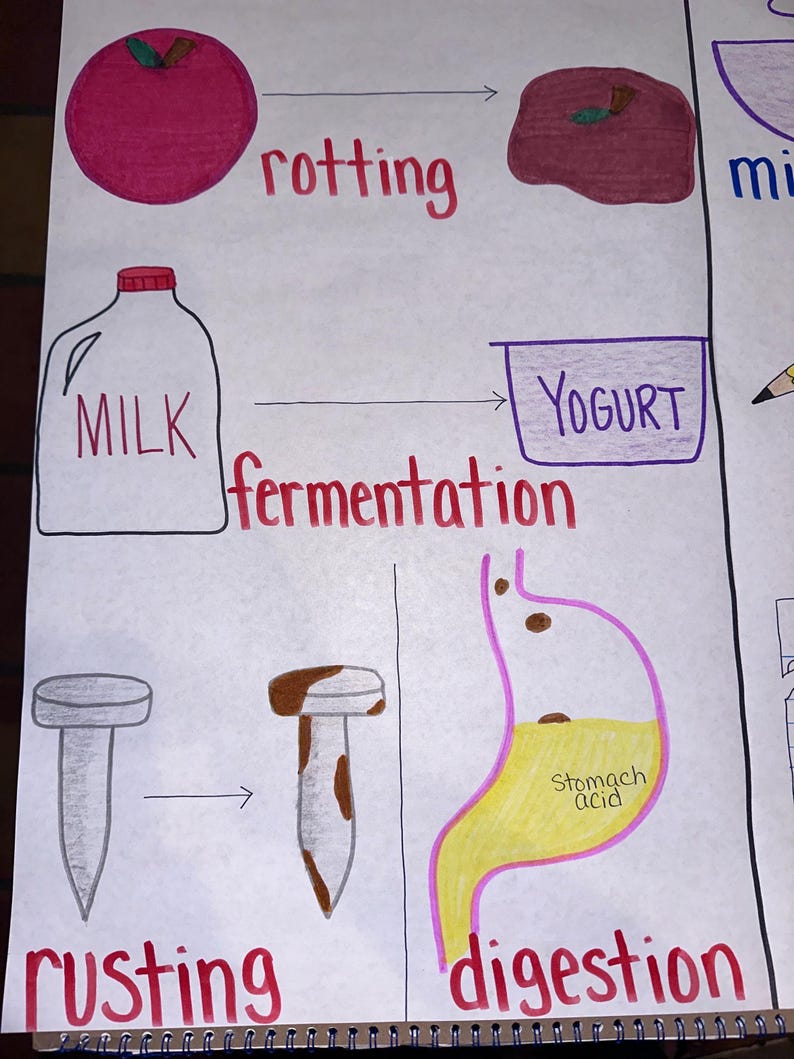 rotting
mi
MILK
YOGURT
fermentation
stomach
acid
rusting
digestion